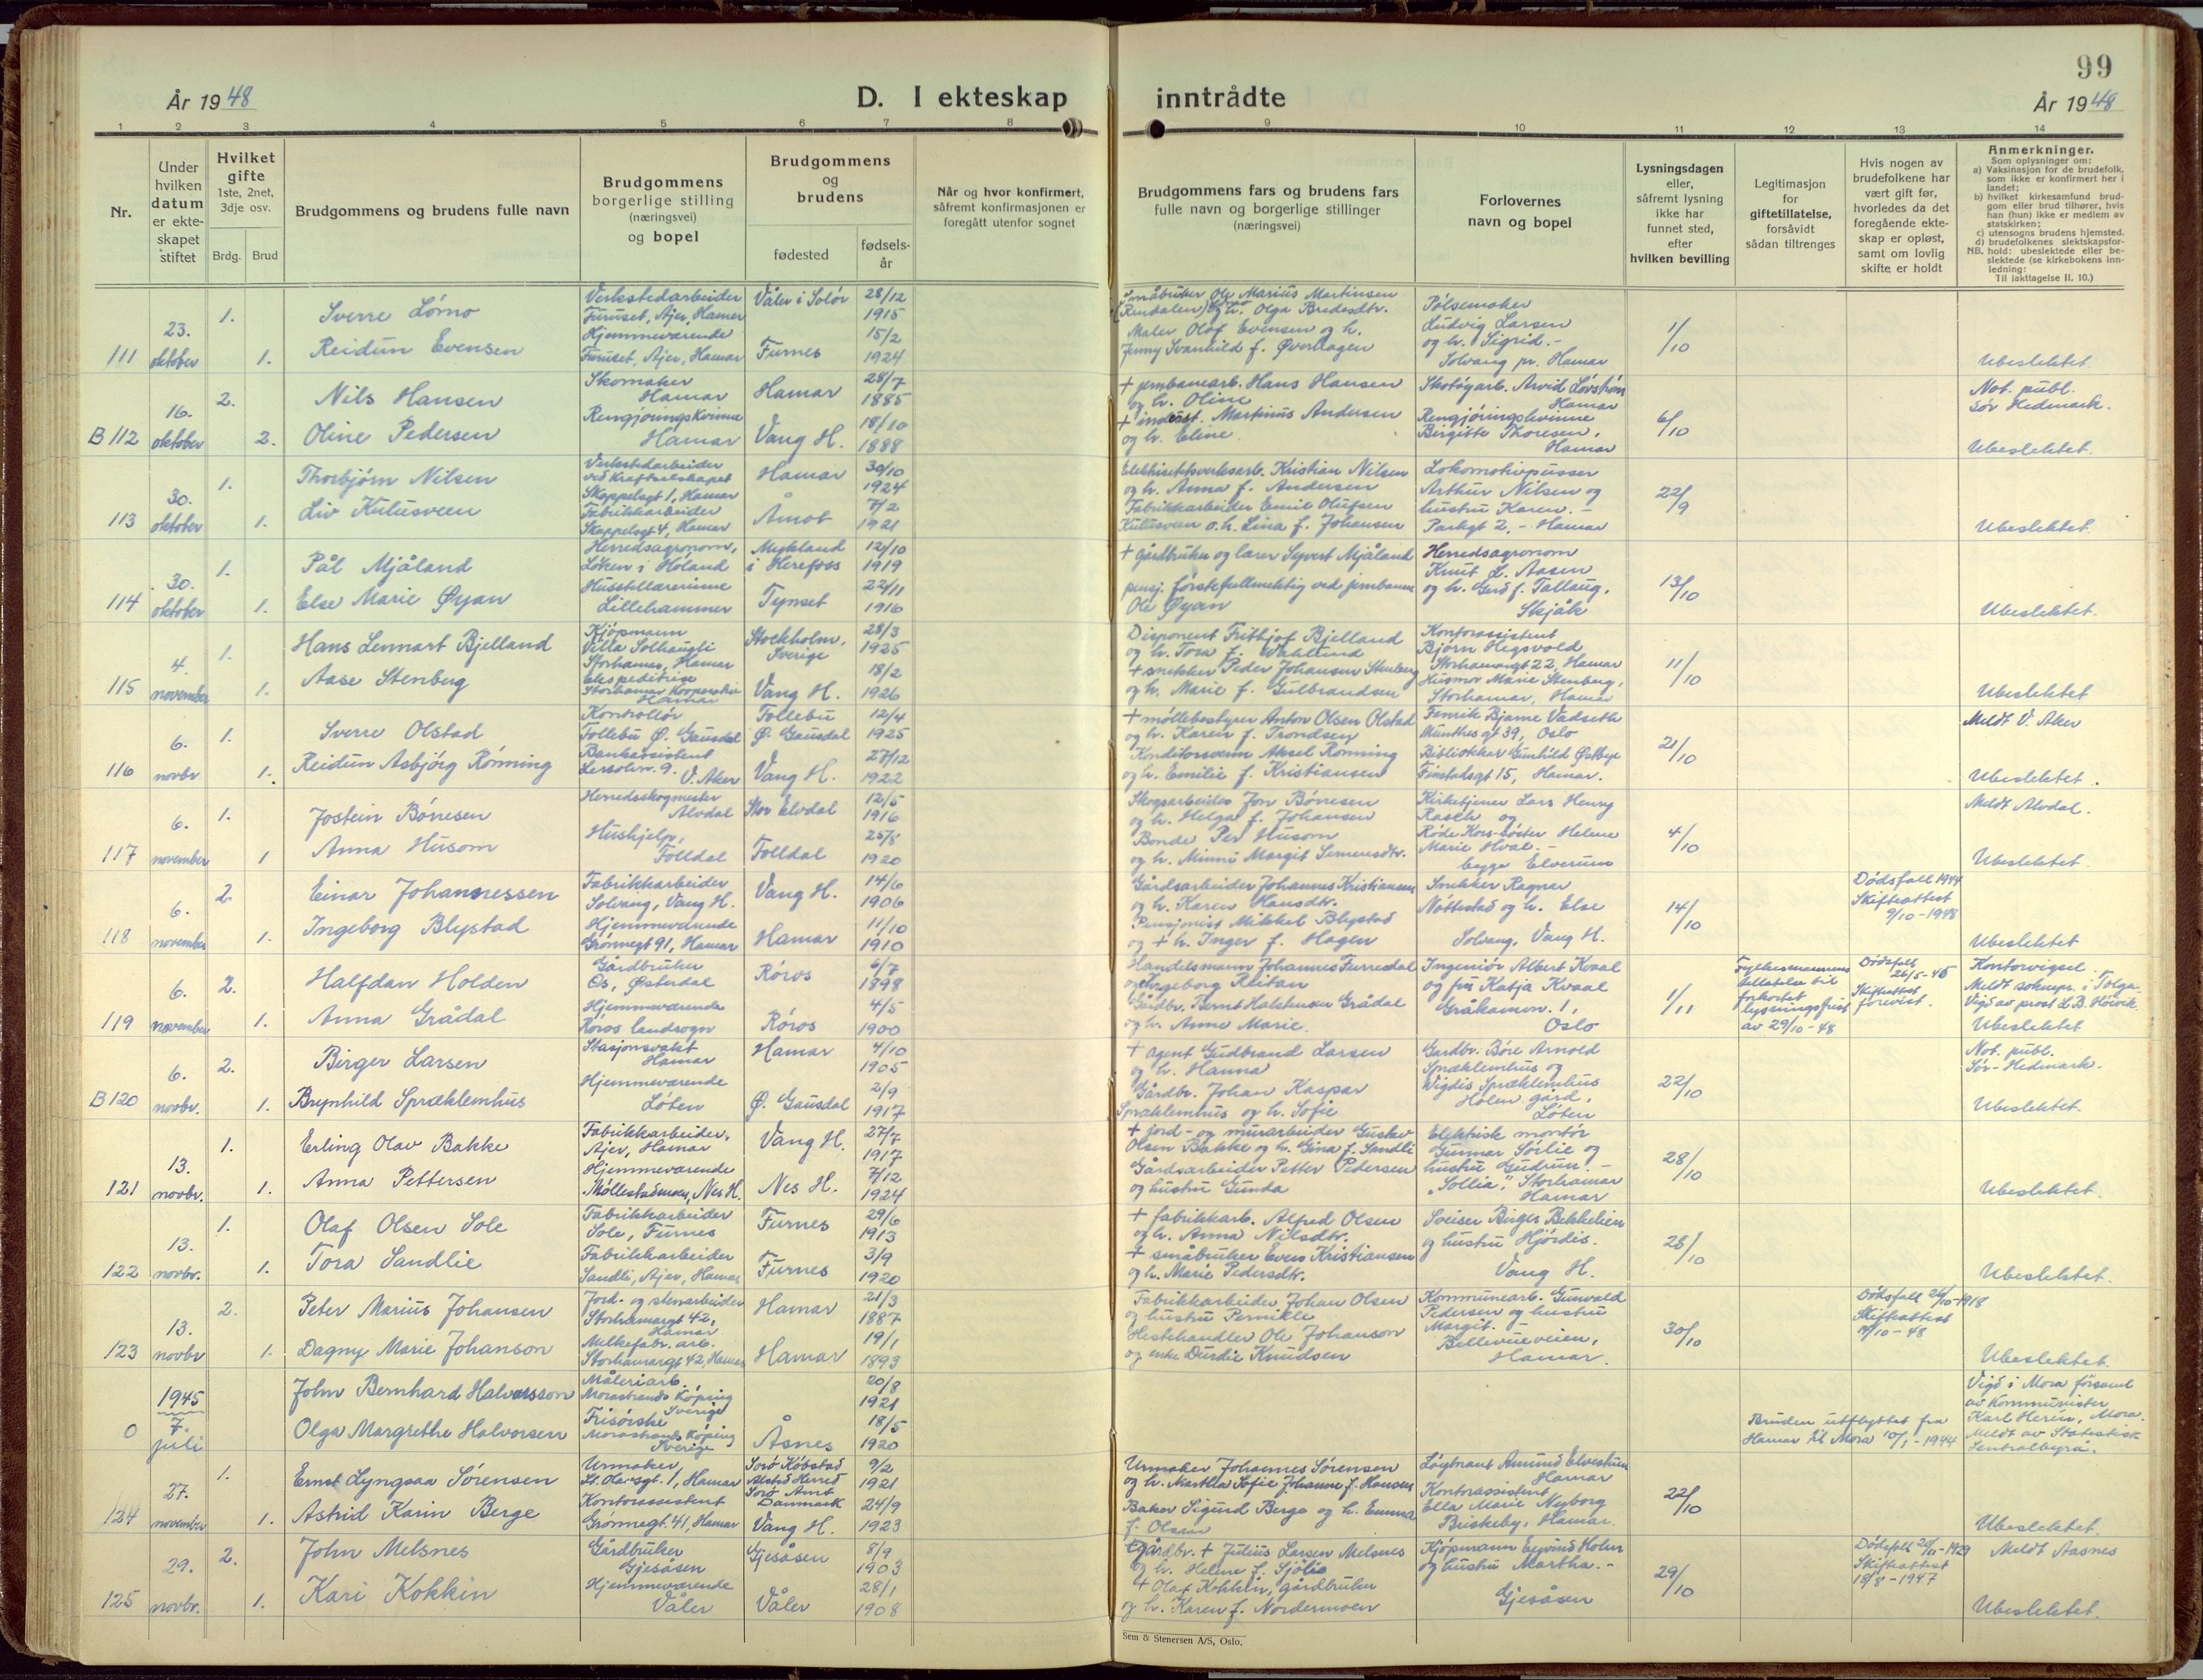 99
År 1948
D. I ekteskap inntrådte
År 1948
1 2 3 4 5 6 7 8 9 10 11 12 13 14
Nr.
Under hvilken datum er ekteskapet stiftet
Hvilket gifte
1ste, 2net, 3dje osv.
Brdg. Brud
Brudgommens og brudens fulle navn
Brudgommens borgerlige stilling (næringsvei) og bopel
Brudgommens og brudens
fødested
fødselsår
Når og hvor konfirmert, såfremt konfirmasjonen er foregått utenfor sognet
Brudgommens fars og brudens fars fulle navn og borgerlige stillinger (næringsvei)
Forlovernes navn og bopel
Lysningsdagen eller, såfremt lysning ikke har funnet sted, efter hvilken bevilling
Legitimasjon for giftetillatelse, forsåvidt sådan tiltrenges
Hvis nogen av brudefolkene har vært gift før, hvorledes da det foregående ekteskap er opløst, samt om lovlig skifte er holdt
Anmerkninger.
Som oplysninger om:
a) Vaksinasjon for de brudefolk, som ikke er konfirmert her i landet;
b) hvilket kirkesamfund brudgom eller brud tilhører, hvis han (hun) ikke er medlem av statskirken;
c) utensogns brudens hjemsted.
d) brudefolkenes slektskapsforhold: ubeslektede eller beslektede (se kirkebokens innledning:
NB. Til iakttagelse II. 10.)
111
23. oktober
1. 1.
Sverre Lømo
Reidun Evensen
Verkstedarbeider
Furuset, Ajer, Hamar
Hjemmeværende
Furuset, Ajer, Hamar
Våler i Solør 28/12 1915
Furnes 15/2 1924
Småbruker Ole Marius Martinsen
(Rendalen) og h. Olga Bredesdtr.
Maler Olaf Evensen og h.
Jenny Svanhild f. Øverhagen
Pølsemaker
Ludvig Larsen
og h. Sigrid.-
Solvang pr. Hamar
1/10
Ubeslektet.
B 112
16. oktober
2. 2.
Nils Hansen
Oline Pedersen
Skomaker
Hamar
Rengjøringskvinne
Hamar
Hamar 28/7 1885
Vang H. 18/10 1888
+ jernbanearb. Hans Hansen
og h. Oline
+ indust. Martinus Andersen
og h. Eline.
Skotøyarb. Arvid Løvshøn
Hamar
Rengjøringskvinne
Birgitte Thoresen,
Hamar
6/10
Not. publ.
Sør Hedmark.
Ubeslektet.
113
30. oktober
1. 1.
Thorbjørn Nilsen
Liv Kulusveen
Verkstedarbeider
ved Kraftselskapet
Skappelsgt 1, Hamar
Fabrikkarbeider
Skappelsgt 4, Hamar
Hamar 30/10 1924
Åmot 7/2 1921
Elektrisitetsverksarb. Kristian Nilsen
og h. Anna f. Andersen
Fabrikkarbeider Emil Olufsen
Kulusveen o.h. Lina f. Johansen
Lokomotivpusser
Arthur Nilsen og
hustru Karen. -
Parkgt 2. - Hamar
22/9
Ubeslektet.
114
30. oktober
1. 1.
Pål Mjåland
Else Marie Øyan
Herredsagronom,
Løken i Høland
Husstellærerinne
Lillehammer
Mykland
i Herefoss 12/10 1919
Tynset 22/11 1916
+ gårdbruker og lærer Syvert Mjåland
pensj. førstefullmektig ved jernbanen
Ole Øyan
Herredsagronom
Knut L. Aasen
og h. Gerd f. Tallaug,
Skjåk
13/10
Ubeslektet.
115
4. november
1. 1.
Hans Lennart Bjelland
Aase Stenberg
Kjøpmann
Villa Solhaugli
Storhamar, Hamar
Ekspeditrise
Storhamar Kooperativ
Hamar
Stockholm,
Sverige 28/3 1925
Vang H. 18/2 1926
Disponent Frithjof Bjelland
og h. Tora f. Wahlund
+ snekker Peder Johansen Stenberg
og h. Marie f. Gulbrandsen
Kontorassistent
Bjørn Hegsvold
Storhamargt 22, Hamar
Husmor Marie Stenberg,
Storhamar, Hamar
11/10
Ubeslektet
116
6. novbr.
1. 1.
Sverre Olstad
Reidun Asbjørg Rønning
Kontrollør
Follebu Ø. Gausdal
Bankassistent
Lersolvn. 9. V. Aker
Follebu
Ø. Gausdal 12/4 1925
Vang H. 27/12 1922
+ møllebestyrer Anton Olsen Olstad
og h. Karen f. Trondsen
Konditorsvenn Aksel Rønning
og h. Emilie f. Kristiansen
Fenrik Bjarne Vadseth
Munthes gt 39, Oslo
Bibliotekar Gunhild Østbye
Finstadsgt 15, Hamar.
21/10
Meldt V. Aker
Ubeslektet.
117
6. november
1. 1
Jostein Børresen
Anna Husom
Herredsskogmester
Alvdal
Hushjelp,
Folldal
Stor Elvdal 12/5 1916
Folldal 25/8 1920
Skogsarbeider Jon Børresen
og h. Helga f. Johansen
Bonde Per Husom
og h. Minni Margit Simensdtr.
Kirketjener Lars Henry
Rasch og
Røde Kors-søster Helene
Marie Hval. -
begge Elverum
4/10
Meldt Alvdal.
Ubeslektet.
118
6. november
2. 1.
Einar Johannessen
Ingeborg Blystad
Fabrikkarbeider
Solvang, Vang H.
Hjemmeværende
Grønnegt 91, Hamar
Vang H. 14/6 1906
Hamar 11/10 1910
Gårdsarbeider Johannes Kristiansen
og h. Karen Hansdtr.
Pensjonist Mikkel Blystad
og + h. Inger f. Hagen
Snekker Ragnar
Nøttestad og h. Else
Solvang, Vang H.
14/10
Dødsfall 1944
Skifteattest
9/10 - 1948
Ubeslektet
119
6. november
2. 1.
Halfdan Holden
Anna Grådal
Gårdbruker
Os, Østerdal
Hjemmeværende
Røros landsogn
Røros 6/7 1898
Røros 4/5 1900
Handelsmann Johannes Furredal
og Ingeborg Reitan
Gårdbr. Bernt Halvorsen Grådal
og h. Anne Marie.
Ingeniør Albert Kvaal
og fru Katja Kvaal
Gråkamvn. 1,
Oslo
1/11
Fylkesmannens
tillatelse til
forkortet
lysningsfrist
av 29/10 - 48
Dødsfall
26/5 - 45
Skifteattest
forevist.
Kontorvigsel.
Meldt soknepr. i Tolga.
Vigd av prost L.B. Høivik.
Ubeslektet
B 120
6. novbr.
2. 1.
Birger Larsen
Brynhild Spræklemhus
Stasjonsvakt
Hamar
Hjemmeværende
Løten
Hamar 4/10 1905
Ø. Gausdal 2/9 1917
+ agent Gudbrand Larsen
og h. Hanna
Gårdbr. Johan Kaspar
Spræklemhus og h. Sofie
Gardbr. Børe Arnold
Spræklemhus og
Wigdis Spræklemhus
Holen gård,
Løten
22/10
Not. publ.
Sør-Hedmark.
Ubeslektet.
121
13. novbr.
1. 1.
Erling Olav Bakke
Anna Pettersen
Fabrikkarbeider,
Ajer, Hamar
Hjemmeværende
Møllestadmoen, Nes H.
Vang H. 27/7 1917
Nes H. 7/12 1924
+ jord- og murarbeider Gustav
Olsen Bakke og h. Gina f. Sandli
Gårdsarbeider Petter Pedersen
og hustru Gunda
Elektrisk montør
Gunnar Sørlie og
hustru Gudrun. -
"Sollia", Storhamar
Hamar
28/10
Ubeslektet.
122
13. novbr.
1. 1.
Olaf Olsen Sole
Tora Sandlie
Fabrikkarbeider
Sole, Furnes
Fabrikkarbeider
Sandli, Ajer, Hamar
Furnes 29/6 1913
Furnes 3/9 1920
+ fabrikkarb. Alfred Olsen
og h. Anna Nilsdtr.
+ småbruker Even Kristiansen
og h. Marie Pedersdtr.
Sveiser Birger Bekkelien
og hustru Hjørdis.
Vang H.
28/10
Ubeslektet.
123
13. novbr
2. 1.
Peter Marius Johansen
Dagny Marie Johanson
Jord- og stenarbeider
Storhamargt 42,
Hamar
Melkefabr. arb.
Storhamargt 42, Hamar
Hamar 21/3 1887
Hamar 19/1 1893
Fabrikkarbeider Johan Olsen
og hustru Pernille
Hestehandler Ole Johanson
og enke Durdie Knudsen
Kommunearb. Gunvald
Pedersen og hustru
Margit. -
Bellevueveien,
Hamar.
30/10
Dødsfall 26/10-1918
Skifteattest
14/10 - 48
Ubeslektet
0
1945
7. juli
John Bernhard Halvarsson
Olga Margrethe Halvorsen
Måleriarb.
Morastrands Köping
Sverige
Frisørske
Morastrands Köping
Sverige
20/8 1921
Åsnes 18/5 1920
Bruden utflyttet fra
Hamar til Mora 10/1 - 1944
Vigd i Mora församl
av Kommunister
Karl Herén, Mora.
Meldt av Statistisk
Sentralbyrå.
124
27. november
1. 1.
Ernst Lyngsaa Sørensen
Astrid Karin Berge
Urmaker,
St. Olavsgt. 1, Hamar
Kontorassistent
Grønnegt. 41, Hamar
Sorø Købstad
Alsted Herred
Sorø Amt
Danmark 9/2 1921
Vang H. 24/9 1923
Urmaker Johannes Sørensen
og h. Martha Sofie Johanne f. Hansen
Baker Sigurd Berge og h. Emma
f. Olsen
Løytnant Amund Elvestuen
Hamar
Kontorassistent
Ella Marie Nyborg
Briskeby, Hamar.
22/10
Ubeslektet.
125
29. novbr.
2. 1.
John Melsnes
Kari Kokkin
Gårdbruker
Gjesåsen
Hjemmeværende
Våler
Gjesåsen 8/9 1903
Våler 28/1 1908
Gårdbr. + Julius Larsen Melsnes
og h. Helene f. Sjølie
+ Olaf Kokkin, gårdbruker
og h. Karen f. Nordermoen
Kjøpmann Eyvind Holm
og hustru Martha. -
Gjesåsen
29/10
Dødsfall 20/11 - 1929
Skifteattest
18/8 - 1947
Meldt Aasnes
Ubeslektet.
Sem & Stenersen A/S, Oslo.